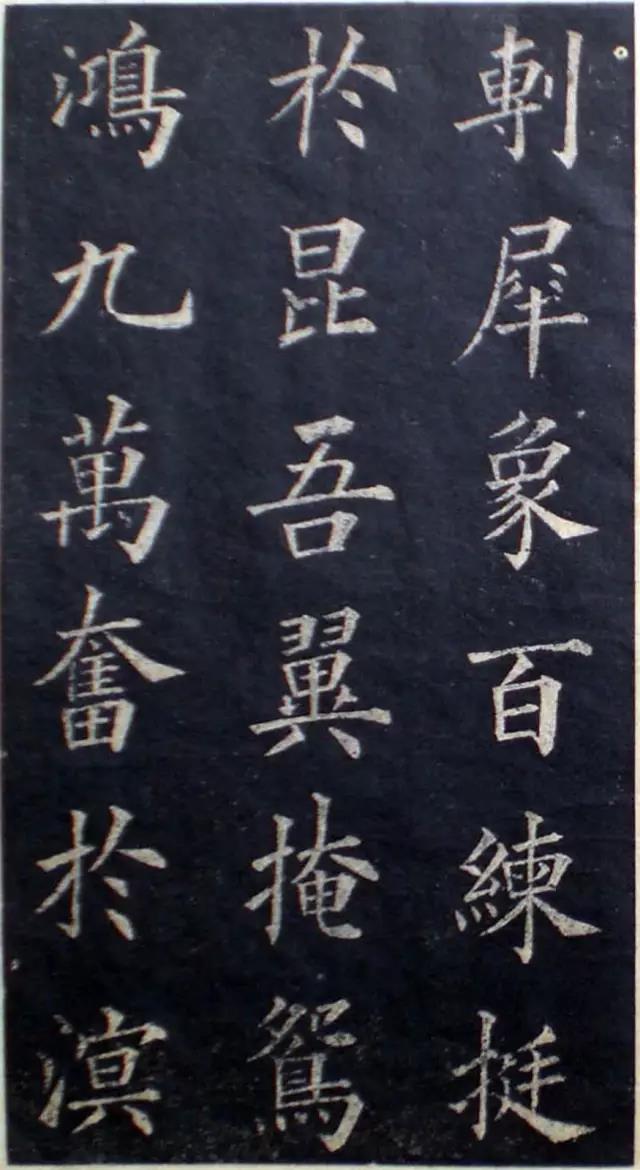 剸犀象百練挺
於昆吾翼掩鴛
鴻九萬奮於溟